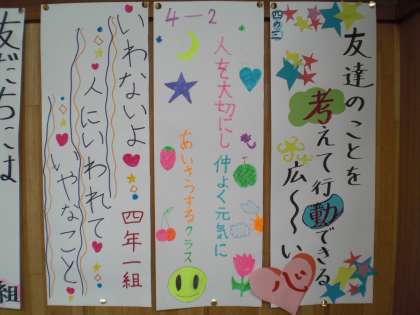 四の三
友達のことを
考えて行動できる
広〜い心
4-2
人を大切にし
仲よく元気に
あいさつするクラス
いわないよ
人にいわれて
いやなこと
四年一組
友だちには
組